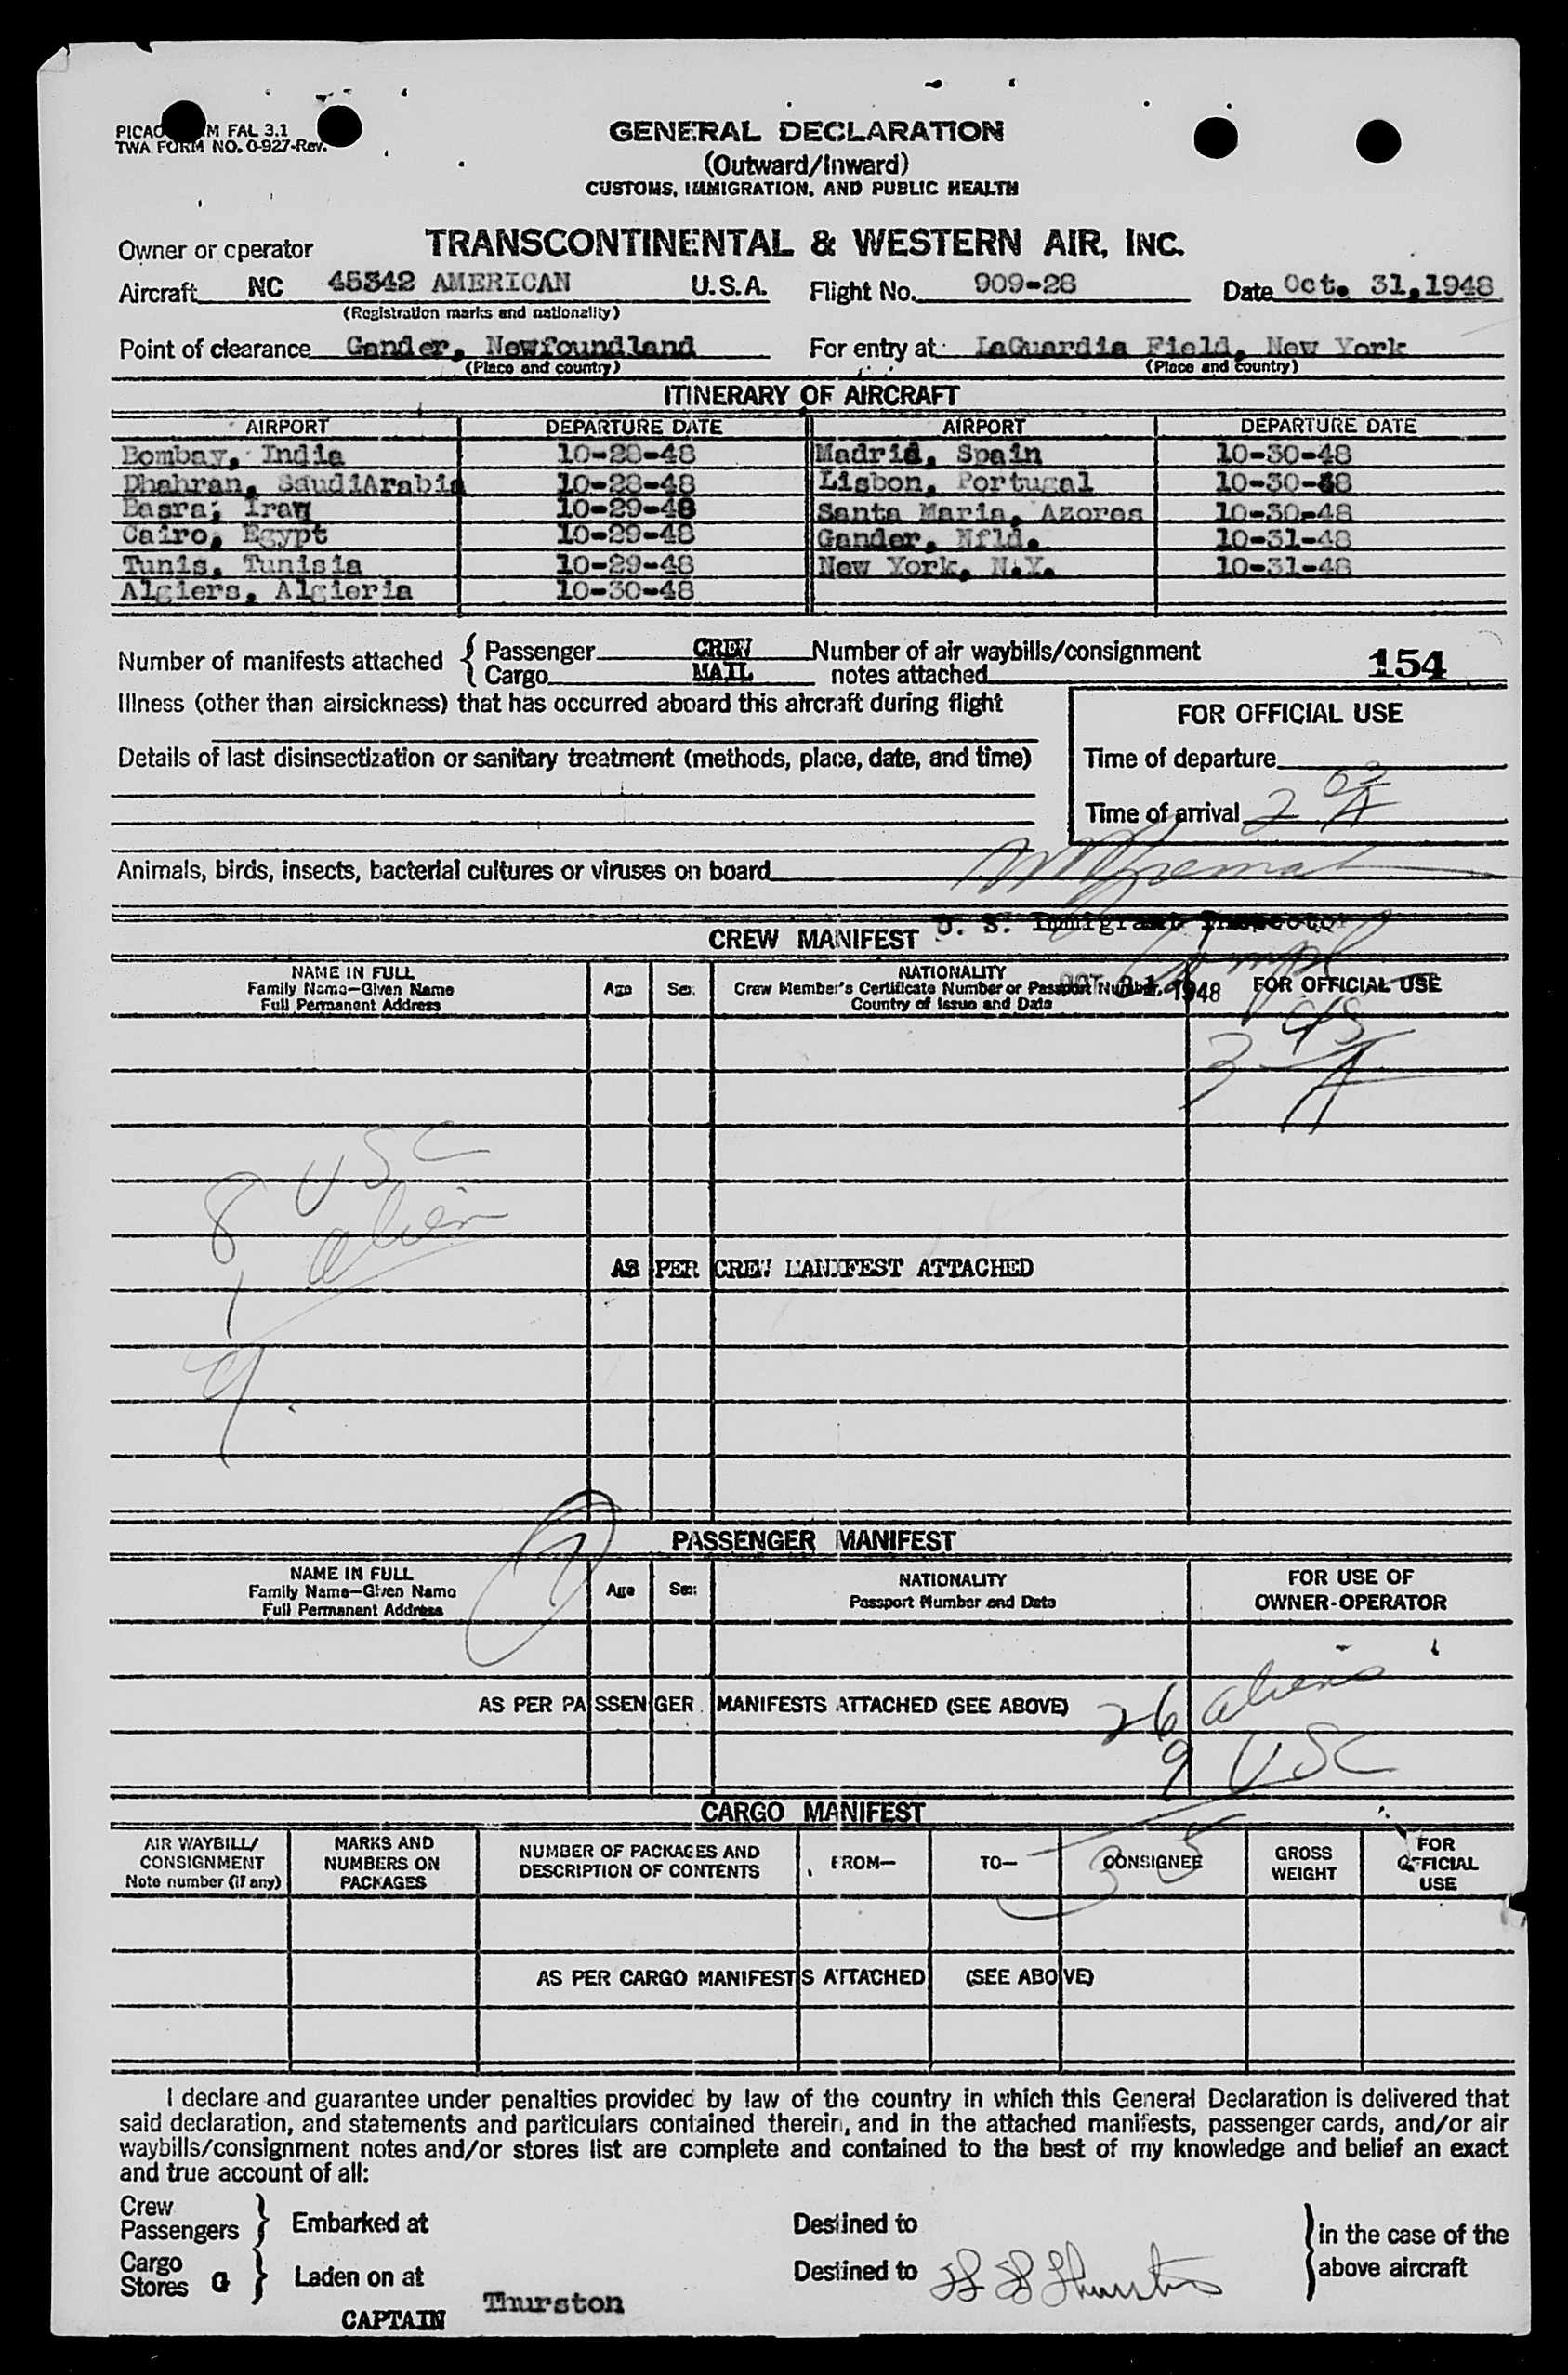 PICAO FORM FAL 3.1
TWA FORM NO. O-927-Rev.
GENERAL DECLARATION
(Outward/Inward)
CUSTOMS, IMMIGRATION, AND PUBLIC HEALTH
Owner or operator TRANSCONTINENTAL & WESTERN AIR, INC.
Aircraft NC 45342 AMERICAN U.S.A. Flight No. 909-28 Date Oct. 31,1948
(Registration marks and nationality)
Point of clearance Gander, Newfoundland For entry at LaGuardia Field, New York
(Place and country) (Place and country)
ITINERARY OF AIRCRAFT
AIRPORT DEPARTURE DATE AIRPORT DEPARTURE DATE
Bombay, India 10-28-48 Madrid, Spain 10-30-48
Dhahran, SaudiArabia 10-28-48 Lisbon, Portugal 10-30-48
Basra, Iraq 10-29-48 Santa Maria, Azores 10-30-48
Cairo, Egypt 10-29-48 Gander, Nfld. 10-31-48
Tunis, Tunisia 10-29-48 New York, N.Y. 10-31-48
Algiers, Algieria 10-30-48
Number of manifests attached { Passenger CREW Number of air waybills/consignment
Cargo MAIL notes attached 154
Illness (other than airsickness) that has occurred aboard this aircraft during flight
FOR OFFICIAL USE
Details of last disinsectization or sanitary treatment (methods, place, date, and time)
Time of departure
Time of arrival 2 03 A
Animals, birds, insects, bacterial cultures or viruses on board
U. S. Immigrant Inspector
CREW MANIFEST
NAME IN FULL
Family Name—Given Name
Full Permanent Address
Age Sex
NATIONALITY
Crew Member's Certificate Number or Passport Number,
Country of Issue and Date
OCT 31 1948
FOR OFFICIAL USE
3 45 A
8 USC
1 alien
9
AS PER CREW MANIFEST ATTACHED
PASSENGER MANIFEST
NAME IN FULL
Family Name—Given Name
Full Permanent Address
Age Sex
NATIONALITY
Passport Number and Date
FOR USE OF
OWNER-OPERATOR
AS PER PASSENGER MANIFESTS ATTACHED (SEE ABOVE)
26 aliens
9 USC
35
CARGO MANIFEST
AIR WAYBILL/
CONSIGNMENT
Note number (if any)
MARKS AND
NUMBERS ON
PACKAGES
NUMBER OF PACKAGES AND
DESCRIPTION OF CONTENTS
FROM—
TO—
CONSIGNEE
GROSS
WEIGHT
FOR
OFFICIAL
USE
AS PER CARGO MANIFESTS ATTACHED (SEE ABOVE)
I declare and guarantee under penalties provided by law of the country in which this General Declaration is delivered that
said declaration, and statements and particulars contained therein, and in the attached manifests, passenger cards, and/or air
waybills/consignment notes and/or stores list are complete and contained to the best of my knowledge and belief an exact
and true account of all:
Crew
Passengers } Embarked at Destined to
Cargo
Stores G } Laden on at Destined to
} in the case of the
above aircraft
CAPTAIN Thurston